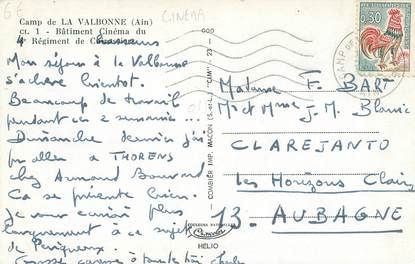 6€
CINEMA
Camp de LA VALBONNE (Ain)
ct. 1 - Bâtiment Cinéma du
4e Régiment de
Mon séjour à la Valbonne
s'achève bientôt.
Beaucoup de travail
pendant ces 2 semaines...
Dimanche dernier j'ai
pu aller à THORENS
chez Armand Bouvard
Ca se présente bien.
Je vous écrirai plus
longuement à ce sujet
de Périgueux.
COMBIER IMP. MACON (S.-&-L.) "CIM" - 23
COULEURS NATURELLES
HELIO
0,30
CAMP
Madame F. BART
Mr et Mme J-M. Blanic
CLAREJANTO
Les Horizons Clairs
13. AUBAGNE